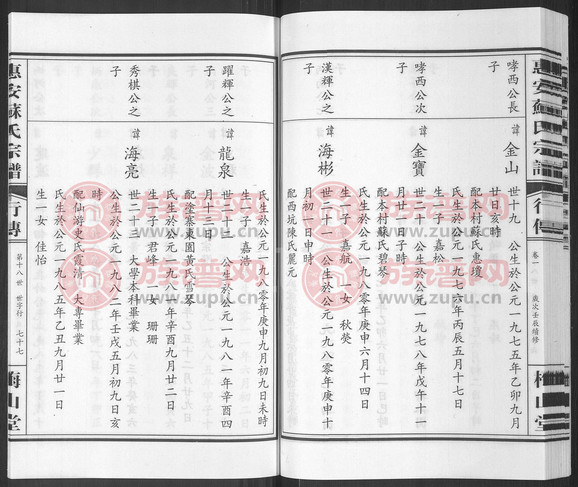 惠安蘇氏宗譜
行傳
卷一
歲次壬辰續修
梅山堂
哮西公長
子
諱 金山
世十九 公生於公元一九七五年乙卯九月
廿日亥時
配本村蘇氏惠瓊
氏生於公元一九七六年丙辰五月十七日
生一子 嘉松
哮西公次
子
諱 金寶
世二十 公生於公元一九七八年戊午十一
月廿日子時
配本村蘇氏碧琴
氏生於公元一九八〇年庚申六月十四日
生一子 嘉航 一女 秋熒
漢輝公之
子
諱 海彬
世二十一 公生於公元一九八〇年庚申十
月初一日申時
配西坑陳氏麗元
氏生於公元一九八〇年庚申九月初九日未時
生一子 嘉浩
躍輝公之
子
諱 龍泉
世二十二 公生於公元一九八一年辛酉四
月十三日
配塗寨東園黃氏雪琴
氏生於公元一九八一年辛酉九月廿二日
生一子 君峰 一女 珊珊
秀棋公之
子
諱 海亮
世二十三 大學本科畢業
公生於公元一九八二年壬戌五月初九日亥
時
配仙游史氏霞清 大專畢業
氏生於公元一九八五年乙丑九月廿一日
生一女 佳怡
惠安蘇氏宗譜
行傳
第十八世 世字行 七十七
梅山堂
族譜网
www.zupu.cn